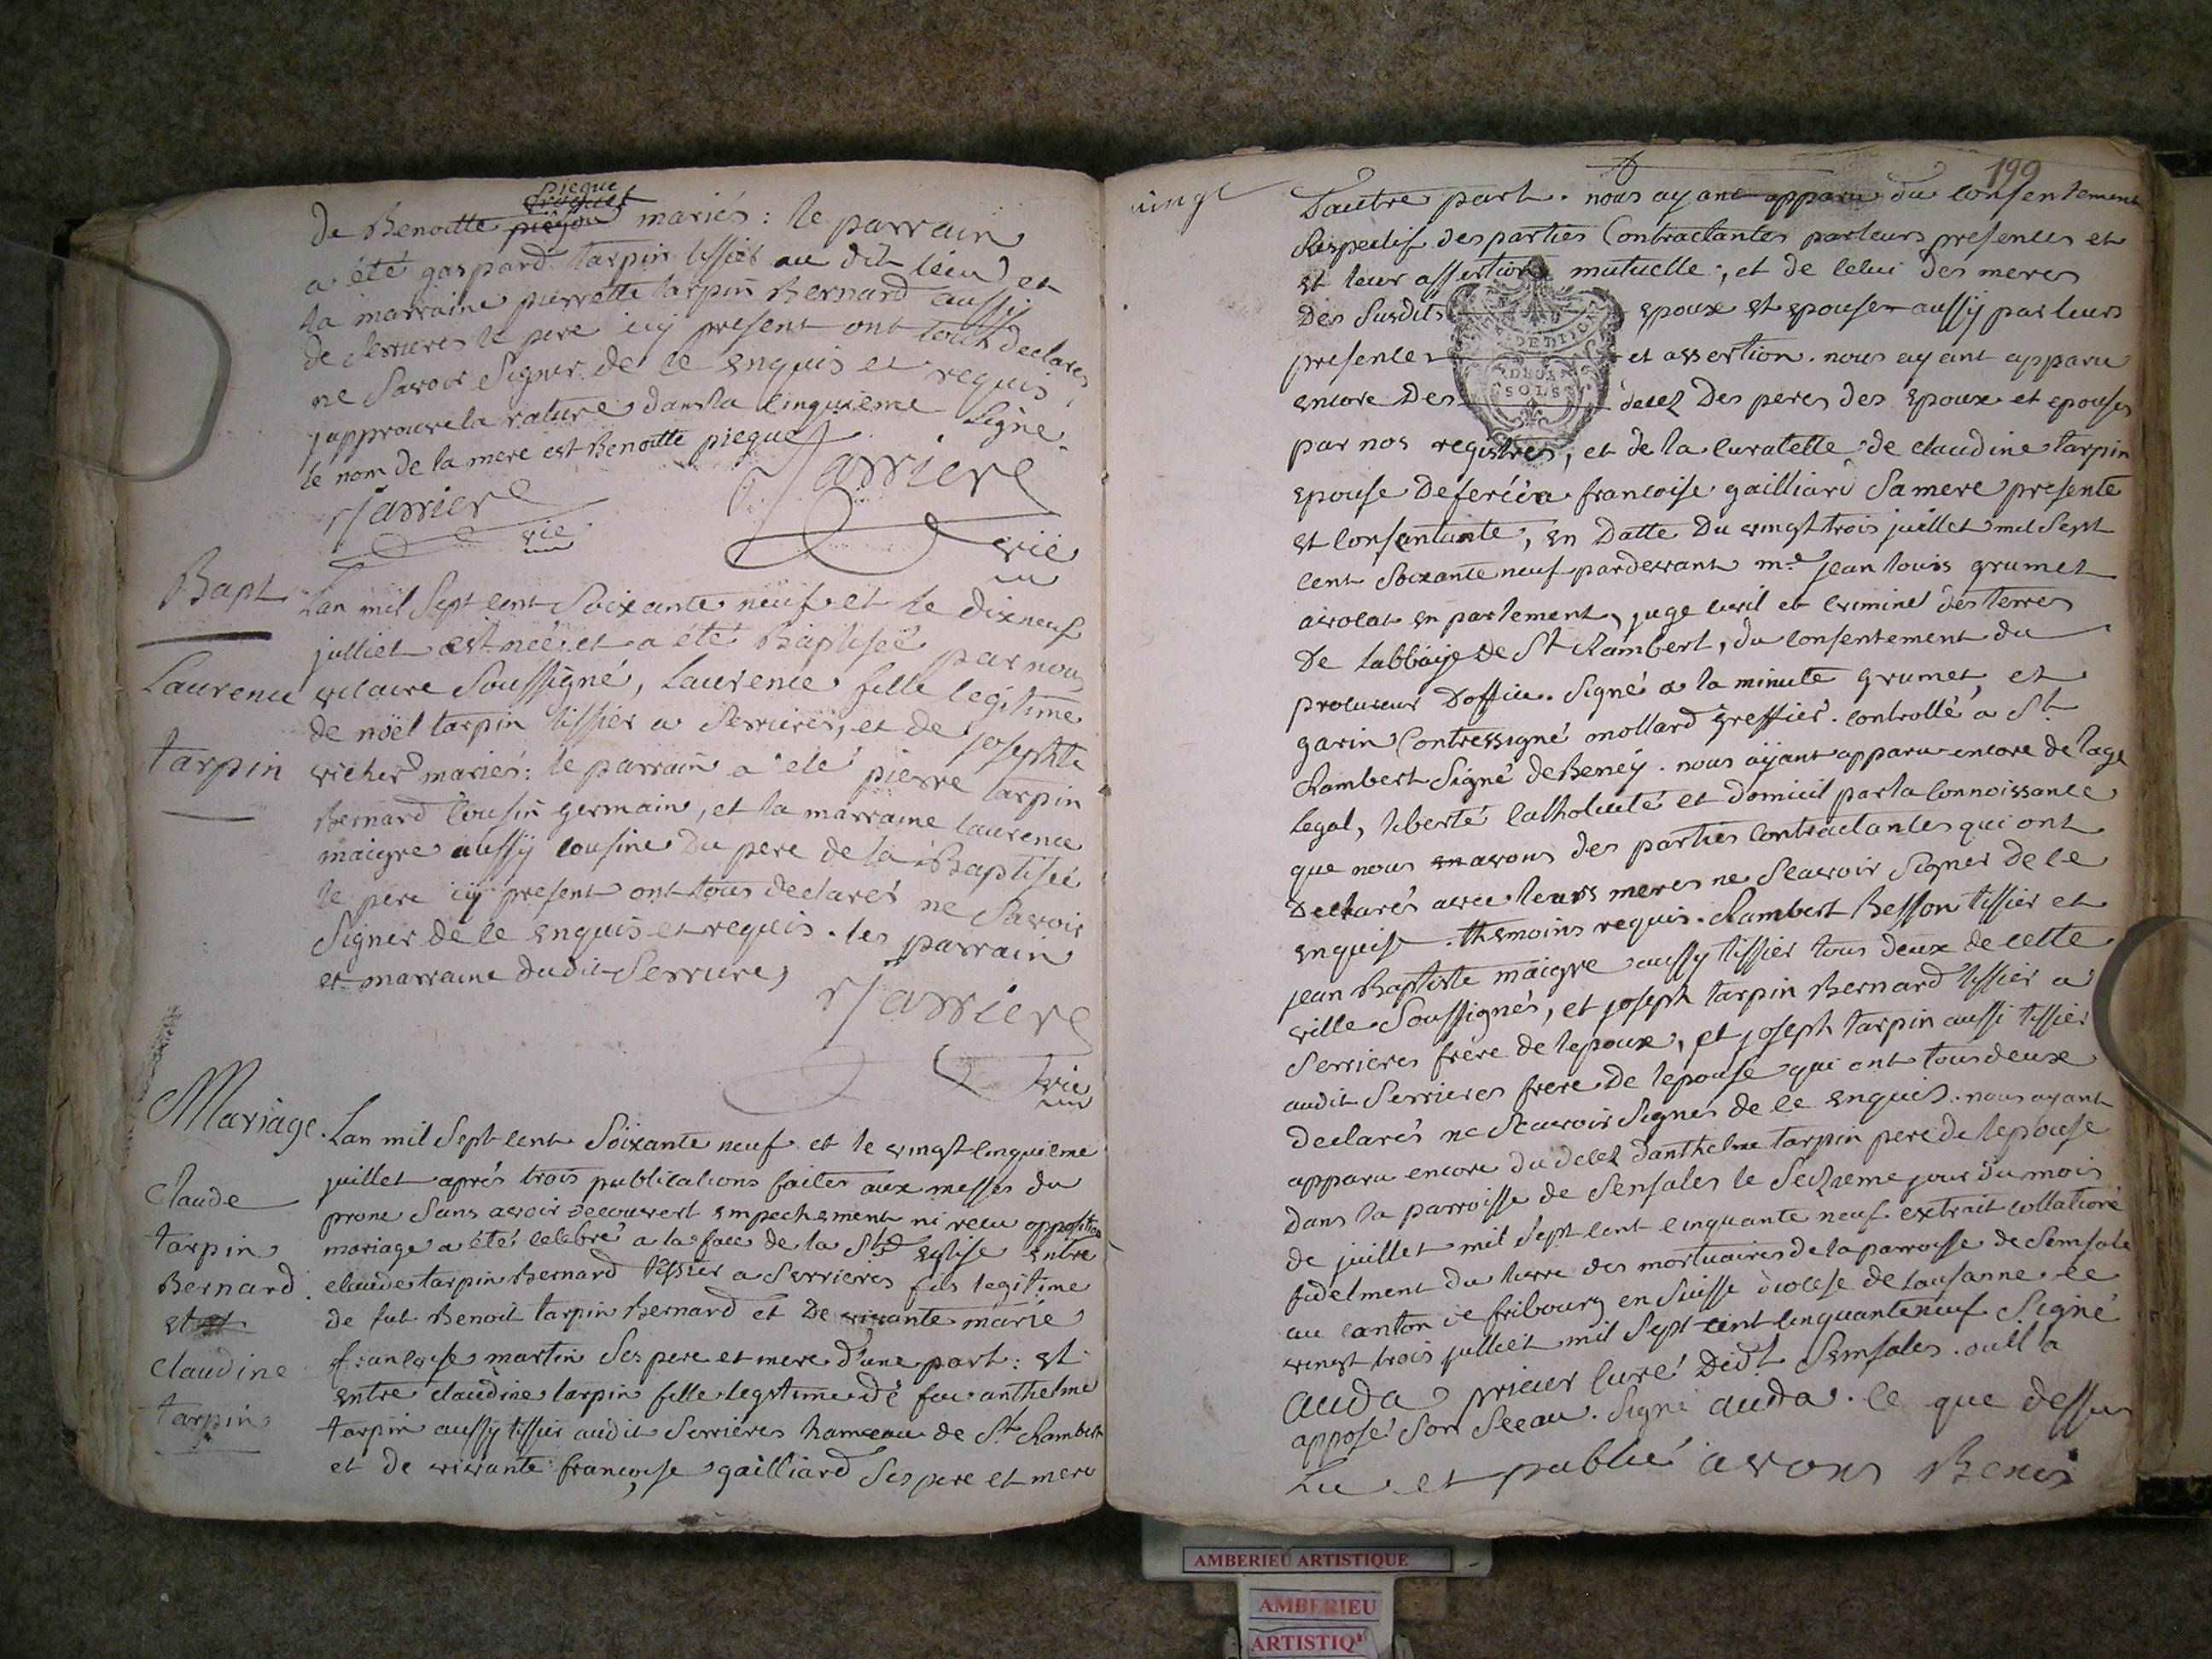 pieque
de Benoitte mariés : le parrain
a été gaspard tarpin tissier au dit lieu et
la marraine pierrette tarpin Bernard aussi
de serrieres le pere icy present ont tous declarés
ne Savoir Signer de ce enquis et requis
japprouve la rature dans la cinquieme Ligne
le nom de la mere est Benoitte pieque
Jarriere Jarriere
vic vic
Bapt Lan mil Sept cent Soixante neuf et le dixneuf
julliet est née et a été Baptisée par nous
Laurence vicaire Soussigné, Laurence fille legitime
de noël tarpin tissier a Serrieres, et de josephte
tarpin mariés : le parrain a été pierre tarpin
Bernard Cousin germain, et la marraine laurence
maigre aussy cousine Du pere de la Baptisée
le pere icy present ont tous declarés ne Savoir
Signer de ce enquis et requis . les parrain
et marraine dudit Serriere,
Jarriere
vic
Mariage. Lan mil Sept cent Soixante neuf et le vingt cinquieme
juillet aprés trois publications faites aux messes du
Claude prone Sans avoir decouvert empechement ni recu opposition
tarpin mariage a été celebré a la face de la Ste Eglise entre
Bernard claude tarpin Bernard tissier a Serrieres fils legitime
et de fut Benoit tarpin Bernard et De vivante marie
Claudine francoise martin Ses pere et mere d'une part : et
entre claudine tarpin fille legitime de feu anthelme
tarpin tarpin aussy tissier audit Serrieres hameau de St Rambert
et de vivante francoise gailliard Ses pere et mere
vingt
199
D'autre part . nous ayant apparu du consentement
Respectif des parties Contractantes par leurs presences et
et leur assertion mutuelle ; et de celui des meres
Des Susdits epoux et epouse aussy par leurs
presences et assertion . nous ayant apparu
encore Des decez Des peres des Epoux et epouses
par nos registres, et de la curatelle de claudine tarpin
epouse deferée a francoise gailliard Sa mere presente
et consentante, en Datte Du vingt trois juillet mil Sept
cent Soixante neuf pardevant me jean louis grumet
avocat en parlement, juge civil et criminel des terres
De labbaye de St Rambert, du consentement du
procureur D'office. Signé a la minute grumet, et
garin Contresigné mollard greffier . controllé a St
Rambert Signé deBeney . nous ayant apparu encore de lage
legal, liberté catholicité et domicil par la connoissance
que nous en avons des parties contractantes qui ont
Declarés avec leurs meres ne Scavoir Signer De ce
enquise . themoins requis . Rambert Besson tissier et
jean Baptiste maigre aussy tissier tous deux de cette
ville Soussignés, et joseph tarpin Bernard tissier a
Serrieres frere de lepoux, et joseph tarpin aussi tissier
audit Serrieres frere De lepouse qui ont tous deux
declarés ne Scavoir Signer de ce enquis . nous ayant
apparu encore du decez danthelme tarpin pere de lepouse
Dans la parroisse de Sensales le Seizieme jour du mois
de juillet mil Sept cent cinquante neuf extrait collationé
fidelment du livre des mortuaires de la parroisse de Semsale
au canton de fribourg en Suisse diocese de lausanne ce
vingt trois julliet mil Sept cent cinquante neuf Signé
auda prieur curé Dudt Semsales . ou il a
apposé Son Sceau . Signé auda . ce que dessus
Lu et publié avons Beni
AMBERIEU ARTISTIQUE
AMBERIEU
ARTISTIQ